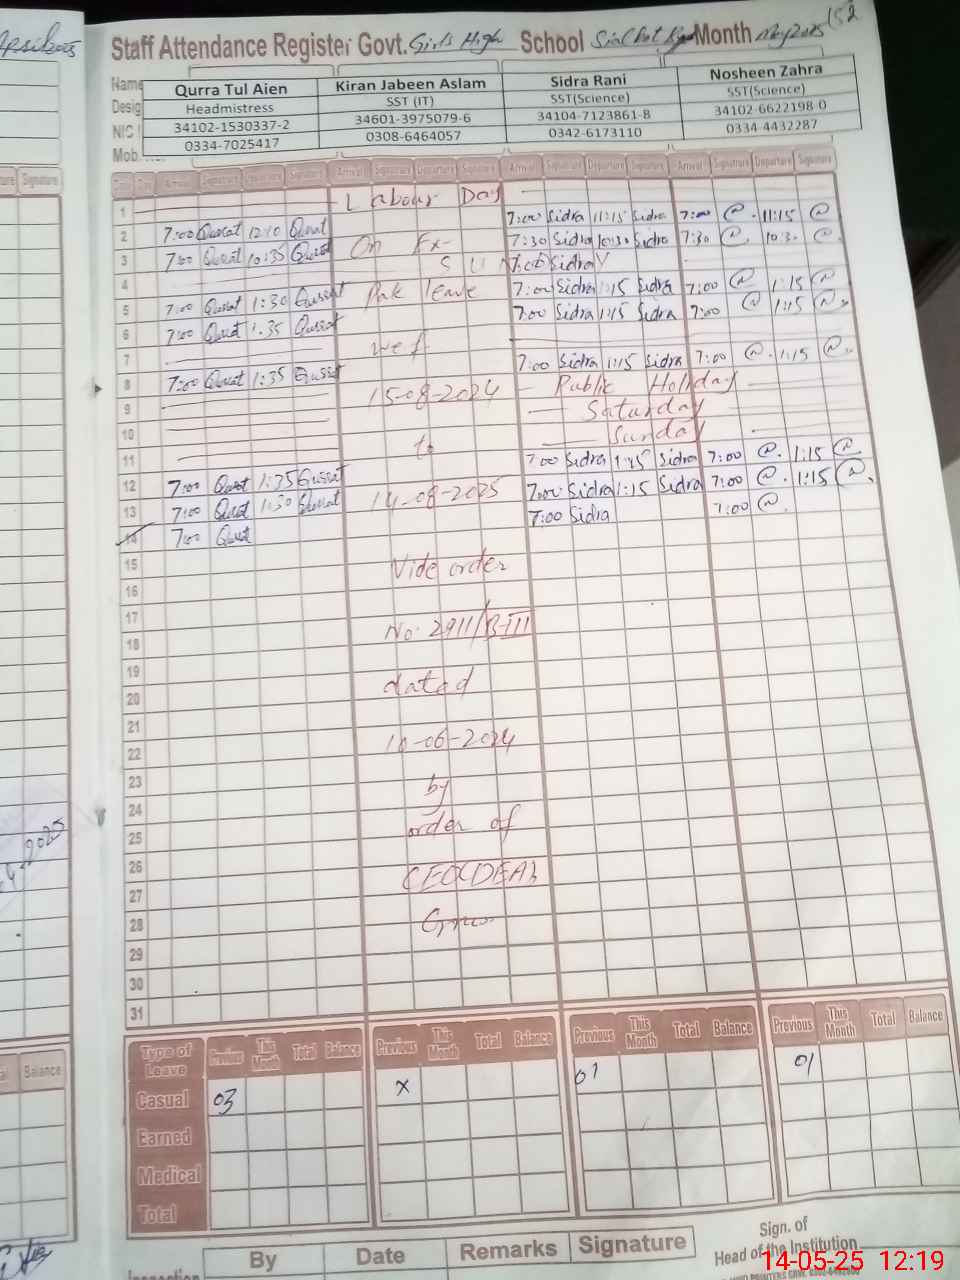 Staff Attendance Register Govt. Girls High School Sialkot Month May 2025 152
Name Qurra Tul Aien Kiran Jabeen Aslam Sidra Rani Nosheen Zahra
Desig Headmistress SST (IT) SST(Science) SST(Science)
NIC 34102-1530337-2 34601-3975079-6 34104-7123861-8 34102-6622198-0
Mob. 0334-7025417 0308-6464057 0342-6173110 0334-4432287
Arrival Signature Departure Signature Arrival Signature Departure Signature Arrival Signature Departure Signature Arrival Signature Departure Signature
1 Labour Day
2 7:00 Qurat 12:10 Qurat 7:00 Sidra 11:15 Sidra 7:00 @ 11:15 @
3 7:00 Qurat 10:35 Qurat On Ex- 7:30 Sidra 10:30 Sidra 7:30 @ 10:30 @
4 S U N 7:00 Sidra
5 7:00 Qurat 1:30 Qurrat Pak leave 7:00 Sidra 1:15 Sidra 7:00 @ 1:15 @
6 7:00 Qurat 1:35 Qurrat 7:00 Sidra 1:15 Sidra 7:00 @ 1:15 @
7 w.e.f
8 7:00 Qurat 1:35 Qurrat 7:00 Sidra 1:15 Sidra 7:00 @ 1:15 @
9 15-08-2024 Public Holiday
10 Saturday
11 to Sunday
12 7:00 Qurat 1:35 Qurrat 7:00 Sidra 1:15 Sidra 7:00 @ 1:15 @
13 7:00 Qurat 1:30 Qurrat 14-08-2025 7:00 Sidra 1:15 Sidra 7:00 @ 1:15 @
14 7:00 Qurat 7:00 Sidra 7:00 @
15 Vide order
16
17
18 No. 2911/B-III
19
20 dated
21
22 10-06-2024
23
24 by
25 order of
26
27 CEO(DEA)
28
29
30
31
Type of Leave Previous This Month Total Balance Previous This Month Total Balance Previous This Month Total Balance Previous This Month Total Balance
Casual 03 x 01 01
Earned
Medical
Total
By Date Remarks Signature
Sign. of
Head of the Institution
14-05-25 12:19
Signature
Balance